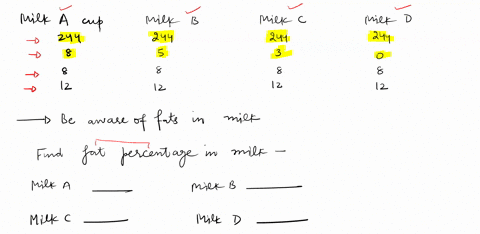 Milk A cup Milk B Milk C Milk D
244 244 244 244
8 5 3 0
8 8 8 8
12 12 12 12
Be aware of fats in milk
Find fat percentage in milk -
Milk A Milk B
Milk C Milk D